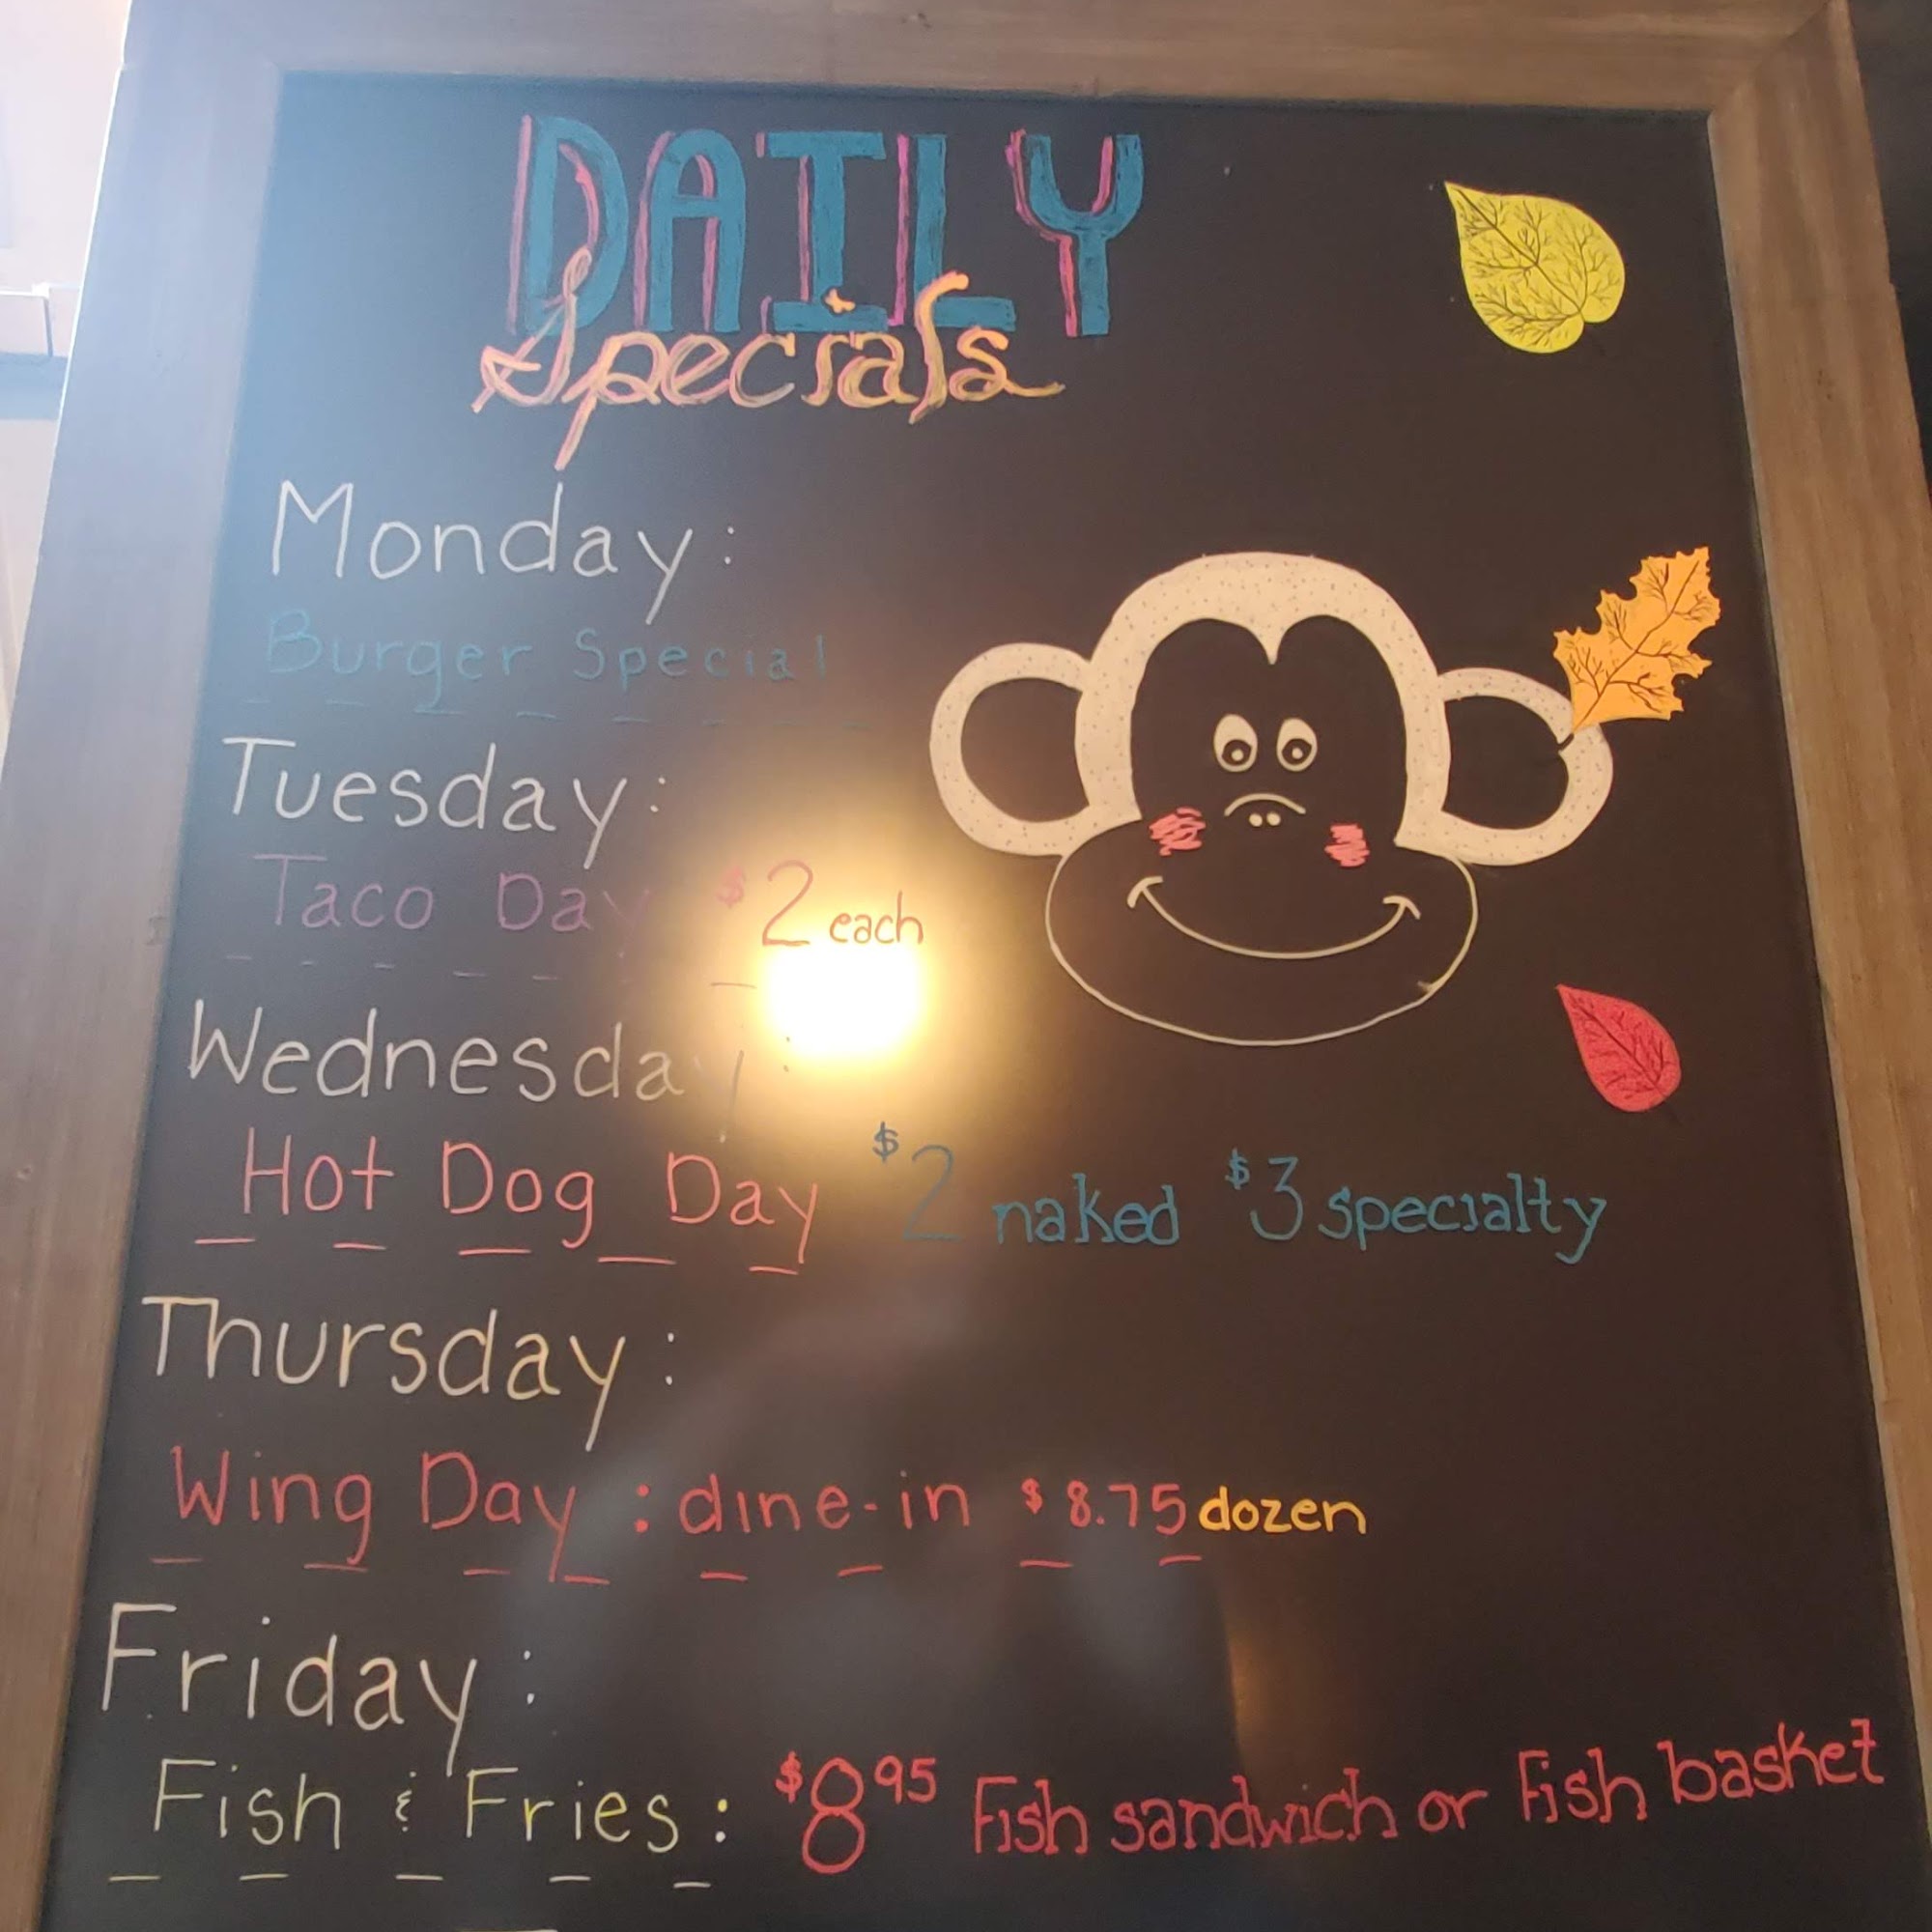 DAILY
Specials
Monday:
Burger Special
Tuesday:
Taco Day $2 each
Wednesday:
Hot Dog Day $2 naked $3 specialty
Thursday:
Wing Day : dine-in $8.75 dozen
Friday:
Fish & Fries: $8.95 Fish sandwich or Fish basket